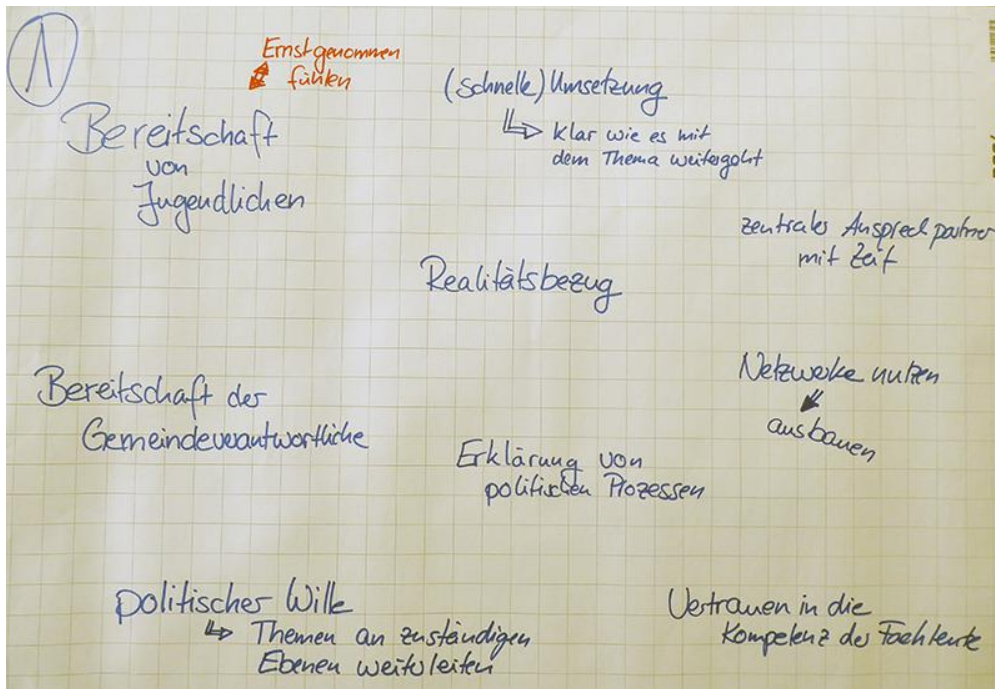 1
Ernstgenommen
fühlen
Bereitschaft
von
Jugendlichen
(schnelle) Umsetzung
klar wie es mit
dem Thema weitergeht
zentraler Ansprechpartner
mit Zeit
Realitätsbezug
Bereitschaft der
Gemeindeverantwortliche
Netzwerke nutzen
ausbauen
Erklärung von
politischen Prozessen
politischer Wille
Themen an zuständigen
Ebenen weiterleiten
Vertrauen in die
Kompetenz der Fachleute